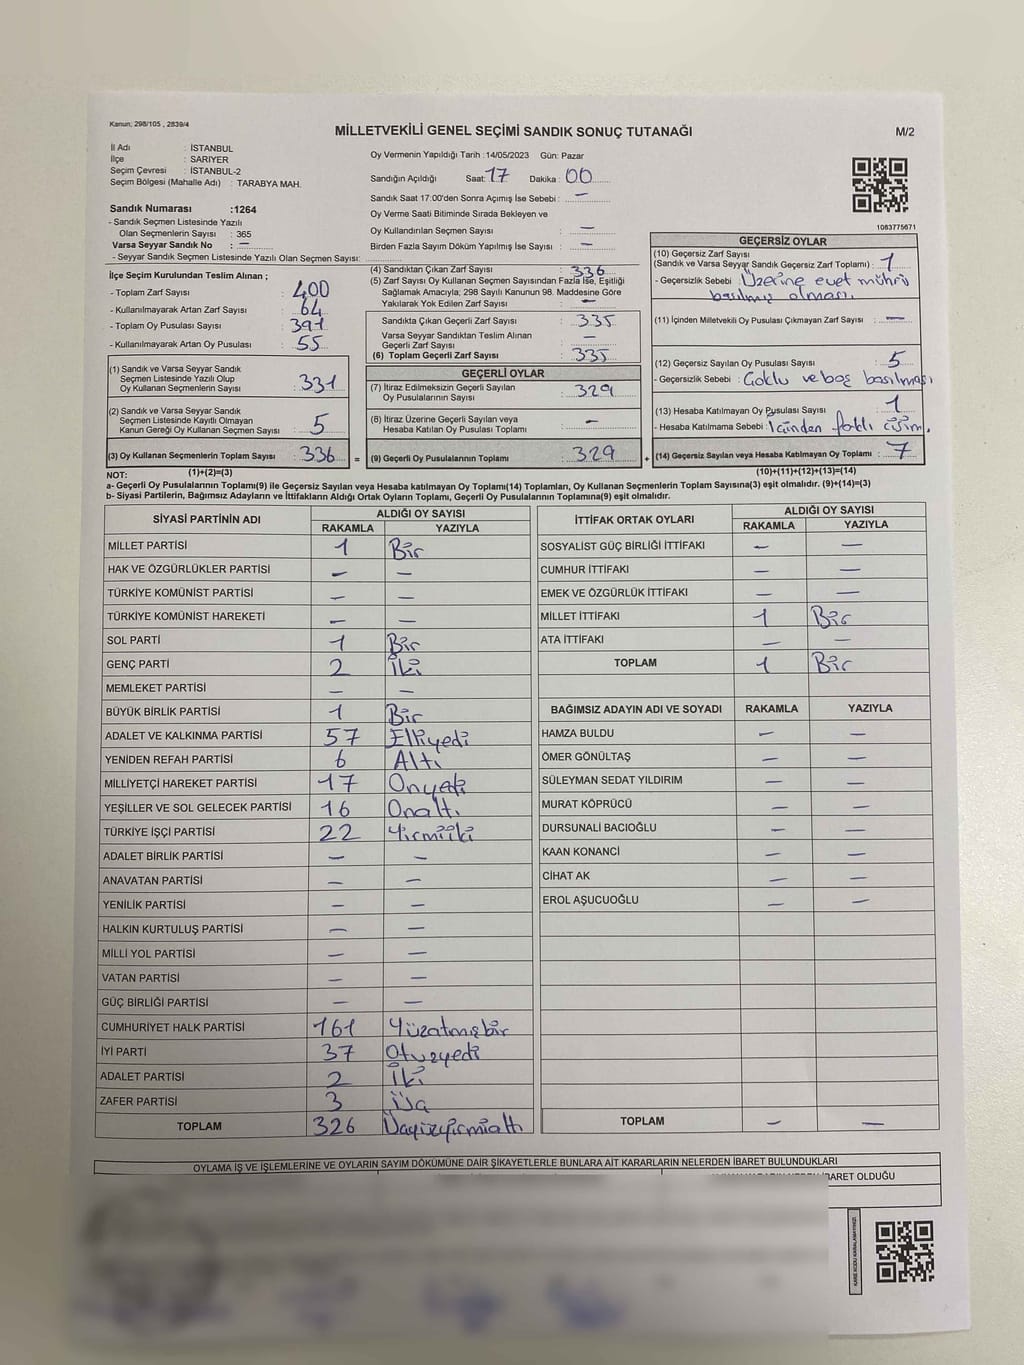 Kanun; 298/105 , 2839/4
MİLLETVEKİLİ GENEL SEÇİMİ SANDIK SONUÇ TUTANAĞI
M/2
İl Adı : İSTANBUL
İlçe : SARIYER
Seçim Çevresi : İSTANBUL-2
Seçim Bölgesi (Mahalle Adı) : TARABYA MAH.
Oy Vermenin Yapıldığı Tarih :14/05/2023 Gün: Pazar
Sandığın Açıldığı Saat:17 Dakika:00
Sandık Saat 17:00'den Sonra Açımış İse Sebebi : —
Oy Verme Saati Bitiminde Sırada Bekleyen ve
Oy Kullandırılan Seçmen Sayısı : —
Birden Fazla Sayım Döküm Yapılmış İse Sayısı : —
Sandık Numarası :1264
- Sandık Seçmen Listesinde Yazılı
Olan Seçmenlerin Sayısı : 365
Varsa Seyyar Sandık No : —
- Seyyar Sandık Seçmen Listesinde Yazılı Olan Seçmen Sayısı:
1083775671
İlçe Seçim Kurulundan Teslim Alınan ;
- Toplam Zarf Sayısı : 400
- Kullanılmayarak Artan Zarf Sayısı : 64
- Toplam Oy Pusulası Sayısı : 391
- Kullanılmayarak Artan Oy Pusulası : 55
(1) Sandık ve Varsa Seyyar Sandık
Seçmen Listesinde Yazılı Olup
Oy Kullanan Seçmenlerin Sayısı : 331
(2) Sandık ve Varsa Seyyar Sandık
Seçmen Listesinde Kayıtlı Olmayan
Kanun Gereği Oy Kullanan Seçmen Sayısı : 5
(3) Oy Kullanan Seçmenlerin Toplam Sayısı : 336
(4) Sandıktan Çıkan Zarf Sayısı : 336
(5) Zarf Sayısı Oy Kullanan Seçmen Sayısından Fazla İse, Eşitliği
Sağlamak Amacıyla; 298 Sayılı Kanunun 98. Maddesine Göre
Yakılarak Yok Edilen Zarf Sayısı : —
Sandıkta Çıkan Geçerli Zarf Sayısı : 335
Varsa Seyyar Sandıktan Teslim Alınan
Geçerli Zarf Sayısı : —
(6) Toplam Geçerli Zarf Sayısı : 335
GEÇERLİ OYLAR
(7) İtiraz Edilmeksizin Geçerli Sayılan
Oy Pusulalarının Sayısı : 329
(8) İtiraz Üzerine Geçerli Sayılan veya
Hesaba Katılan Oy Pusulası Toplamı : —
= (9) Geçerli Oy Pusulalarının Toplamı : 329 +
GEÇERSİZ OYLAR
(10) Geçersiz Zarf Sayısı
(Sandık ve Varsa Seyyar Sandık Geçersiz Zarf Toplamı) : 1
- Geçersizlik Sebebi : Üzerine evet mührü
basılmış olması.
(11) İçinden Milletvekili Oy Pusulası Çıkmayan Zarf Sayısı : —
(12) Geçersiz Sayılan Oy Pusulası Sayısı : 5
- Geçersizlik Sebebi : Çoklu ve boş basılması
(13) Hesaba Katılmayan Oy Pusulası Sayısı : 1
- Hesaba Katılmama Sebebi : İçinden
(14) Geçersiz Sayılan veya Hesaba Katılmayan Oy Toplamı : 7
NOT: (1)+(2)=(3) (10)+(11)+(12)+(13)=(14)
a- Geçerli Oy Pusulalarının Toplamı(9) ile Geçersiz Sayılan veya Hesaba Katılmayan Oy Toplamı(14) Toplamları, Oy Kullanan Seçmenlerin Toplam Sayısına(3) eşit olmalıdır. (9)+(14)=(3)
b- Siyasi Partilerin, Bağımsız Adayların ve İttifakların Aldığı Ortak Oyların Toplamı, Geçerli Oy Pusulalarının Toplamına(9) eşit olmalıdır.
SİYASİ PARTİNİN ADI ALDIĞI OY SAYISI
RAKAMLA YAZIYLA
MİLLET PARTİSİ 1 Bir
HAK VE ÖZGÜRLÜKLER PARTİSİ — —
TÜRKİYE KOMÜNİST PARTİSİ — —
TÜRKİYE KOMÜNİST HAREKETİ — —
SOL PARTİ 1 Bir
GENÇ PARTİ 2 İki
MEMLEKET PARTİSİ — —
BÜYÜK BİRLİK PARTİSİ 1 Bir
ADALET VE KALKINMA PARTİSİ 57 Elliyedi
YENİDEN REFAH PARTİSİ 6 Altı
MİLLİYETÇİ HAREKET PARTİSİ 17 Onyedi
YEŞİLLER VE SOL GELECEK PARTİSİ 16 Onaltı
TÜRKİYE İŞÇİ PARTİSİ 22 Yirmiiki
ADALET BİRLİK PARTİSİ — —
ANAVATAN PARTİSİ — —
YENİLİK PARTİSİ — —
HALKIN KURTULUŞ PARTİSİ — —
MİLLİ YOL PARTİSİ — —
VATAN PARTİSİ — —
GÜÇ BİRLİĞİ PARTİSİ — —
CUMHURİYET HALK PARTİSİ 161 Yüzatmışbir
İYİ PARTİ 37 Otuzyedi
ADALET PARTİSİ 2 İki
ZAFER PARTİSİ 3 Üç
TOPLAM 326 Üçyüzyirmialtı
İTTİFAK ORTAK OYLARI ALDIĞI OY SAYISI
RAKAMLA YAZIYLA
SOSYALİST GÜÇ BİRLİĞİ İTTİFAKI — —
CUMHUR İTTİFAKI — —
EMEK VE ÖZGÜRLÜK İTTİFAKI — —
MİLLET İTTİFAKI 1 Bir
ATA İTTİFAKI — —
TOPLAM 1 Bir
BAĞIMSIZ ADAYIN ADI VE SOYADI RAKAMLA YAZIYLA
HAMZA BULDU — —
ÖMER GÖNÜLTAŞ — —
SÜLEYMAN SEDAT YILDIRIM — —
MURAT KÖPRÜCÜ — —
DURSUNALİ BACIOĞLU — —
KAAN KONANCİ — —
CİHAT AK — —
EROL AŞUCUOĞLU — —
TOPLAM — —
OYLAMA İŞ VE İŞLEMLERİNE VE OYLARIN SAYIM DÖKÜMÜNE DAİR ŞİKAYETLERLE BUNLARA AİT KARARLARIN NELERDEN İBARET BULUNDUKLARI
İBARET OLDUĞU
KARE KODU KARALAMAYINIZ!